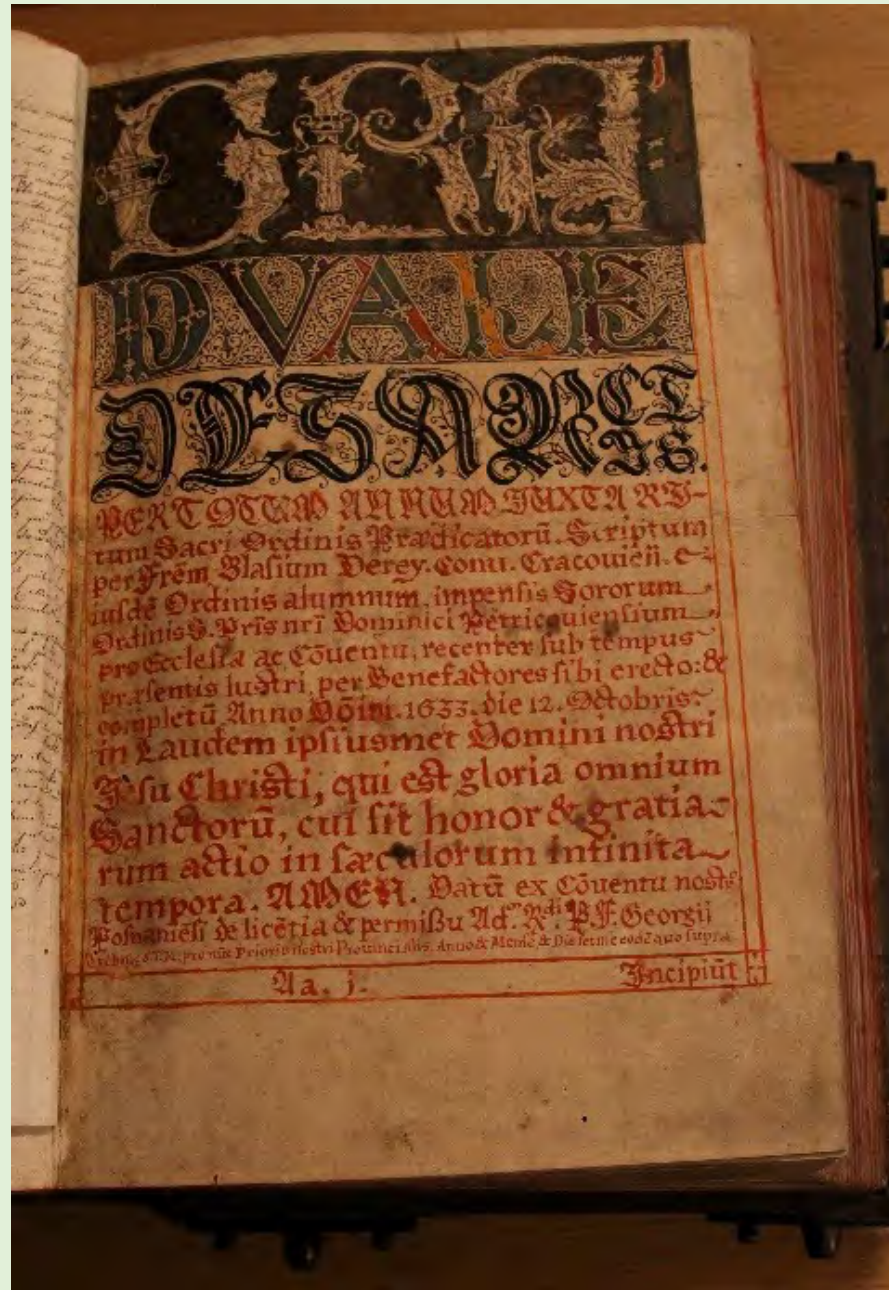 j
GRA
DVALE
DE SANCT
IS.
PER TOTUM ANNUM IUXTA RI-
tum Sacri Ordinis Prædicatorū. Scriptum
per Frēm Blasium Derey. Conu. Cracouień. e-
iusdē Ordinis alumnum, impensis Sororum
Ordinis S. Pr̄is nr̄i Dominici Petricouiensium
pro Ecclesia ac Cōuentu, recenter sub tempus
præsentis lustri, per Benefactores sibi erecto: &
completū Anno Dōini. 1633. die 12. Octobris.
in Laudem ipsiusmet Domini nostri
Jesu Christi, qui est gloria omnium
Sanctorū, cui sit honor & gratia-
rum actio in sæculorum infinita
tempora. AMEN. Datū ex Cōuentu nostr̄
Posnaniēsi de licētia & permißu Ad. R.di P.F. Georgij
Prioris nostri Provincialis. Anno & Mense & Die eodē quo supra
Aa. j. Incipiūt